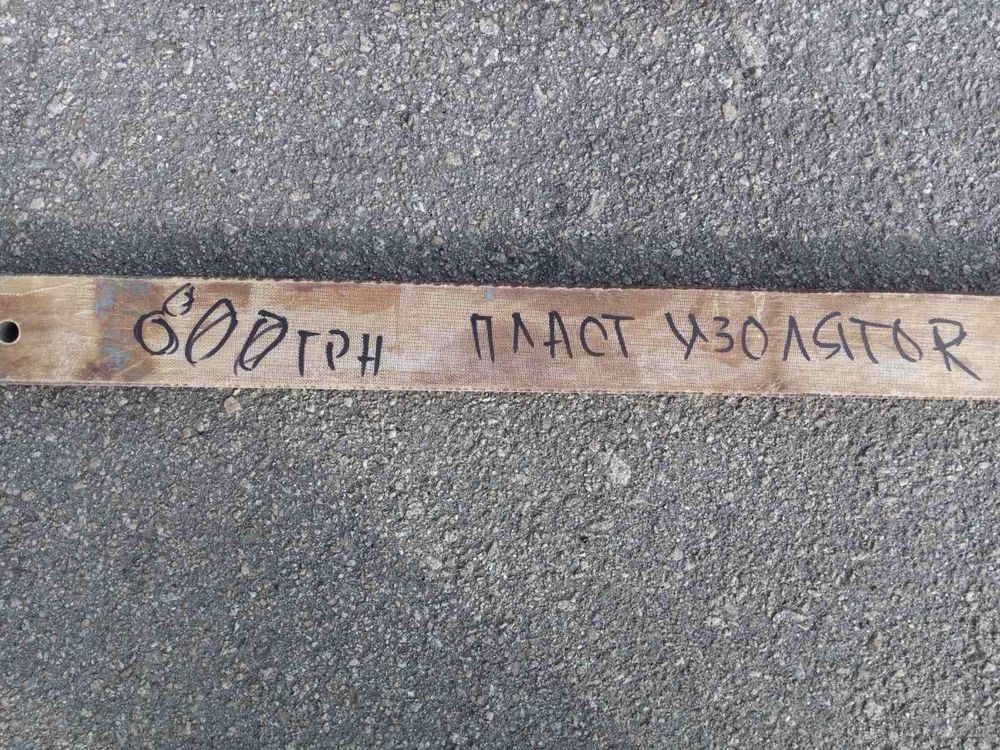 600 ГРН ПЛАСТ ИЗОЛЯТОR